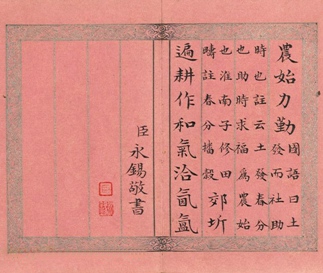 農始力勤國語曰土
發而社助
時也註云土發春分
也助時求福爲農始
也淮南子修田
疇註春分播穀
郊圻
遍耕作和氣洽氤氳
臣永錫敬書